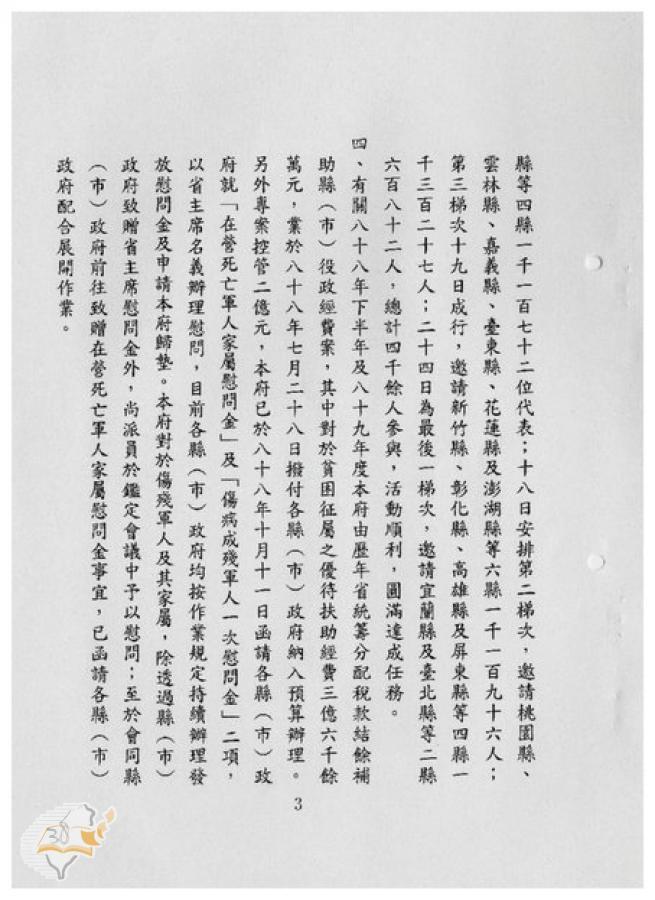 縣等四縣一千一百七十二位代表；十八日安排第二梯次，邀請桃園縣、
雲林縣、嘉義縣、臺東縣、花蓮縣及澎湖縣等六縣一千一百九十六人；
第三梯次十九日成行，邀請新竹縣、彰化縣、高雄縣及屏東縣等四縣一
千三百二十七人；二十四日為最後一梯次，邀請宜蘭縣及臺北縣等二縣
六百八十二人，總計四千餘人參與，活動順利，圓滿達成任務。
四、有關八十八年下半年及八十九年度本府由歷年省統籌分配稅款結餘補
助縣（市）役政經費案，其中對於貧困征屬之優待扶助經費三億六千餘
萬元，業於八十八年七月二十八日撥付各縣（市）政府納入預算辦理。
另外專案控管二億元，本府已於八十八年十月十一日函請各縣（市）政
府就「在營死亡軍人家屬慰問金」及「傷病成殘軍人一次慰問金」二項，
以省主席名義辦理慰問，目前各縣（市）政府均按作業規定持續辦理發
放慰問金及申請本府歸墊。本府對於傷殘軍人及其家屬，除透過縣（市）
政府致贈省主席慰問金外，尚派員於鑑定會議中予以慰問；至於會同縣
（市）政府前往致贈在營死亡軍人家屬慰問金事宜，已函請各縣（市）
政府配合展開作業。
3